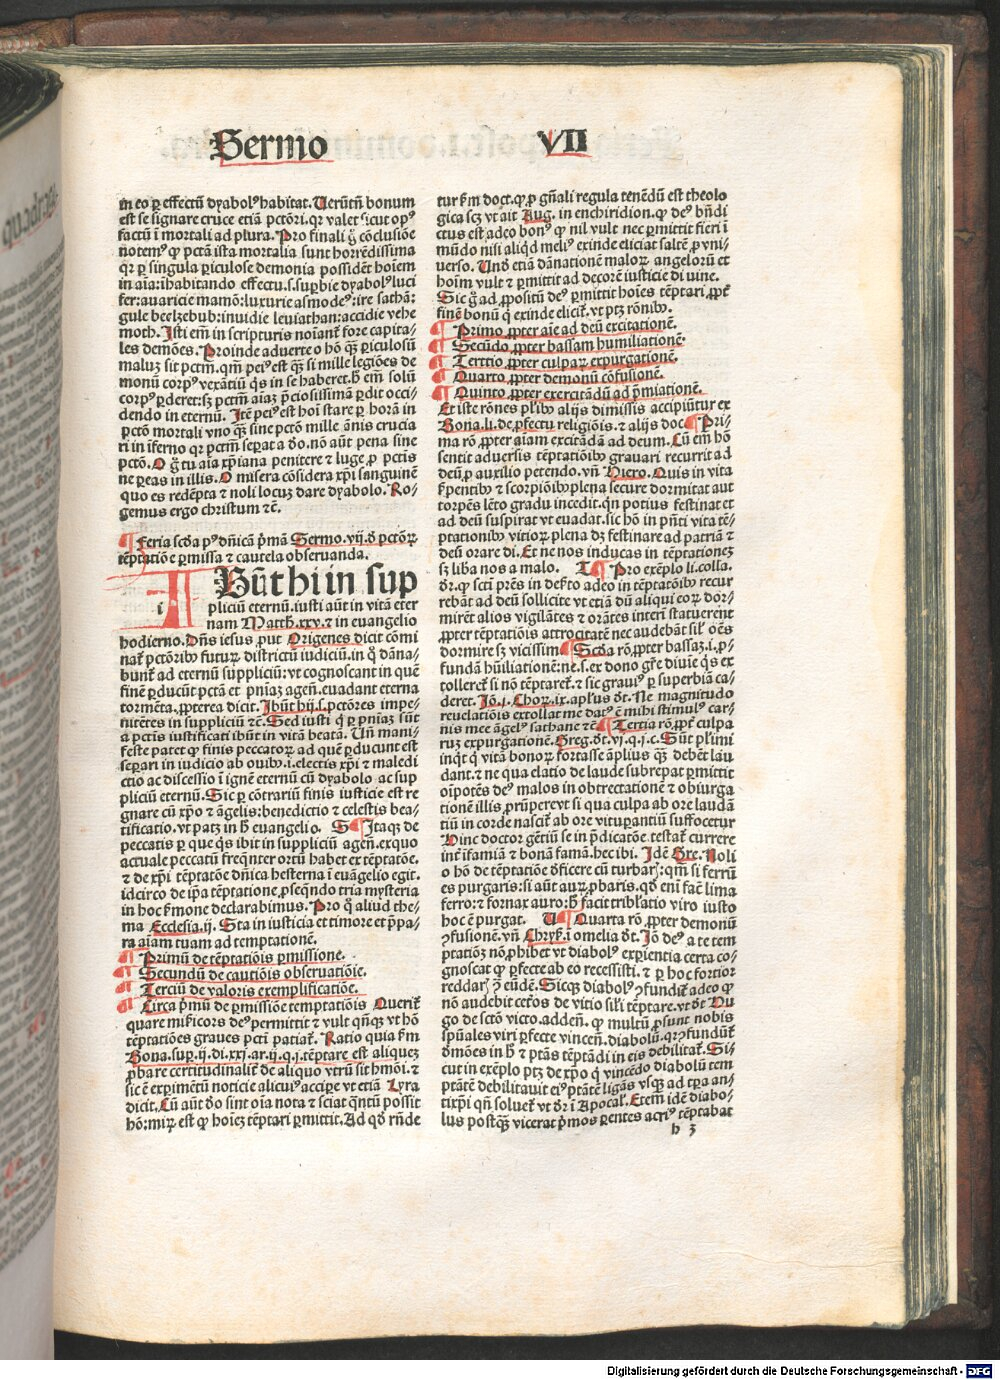 Sermo VII
in eo ꝑ effectũ dyabolꝰ habitat. Uerũtñ bonum
est se signare cruce etiã pctõri. qꝛ valet sicut opꝰ
factũ ĩ mortali ad plura. Pro finali ġ cõclusiõe
notemꝰ ꝙ pctã ista mortalia sunt horrẽdissima
qꝛ ꝑ singula ꝑiculose demonia possidẽt hoĩem
in aĩa: ĩhabitando effectu. s. suꝑbie dyabolꝰ luci
fer: auaricie mamõ: luxurie asmodeꝰ: ire sathã:
gule beelzebub: inuidie leuiathan: accidie vehe
moth. Isti em̃ in scripturis noĩant̃ fore capita/
les demões. Proinde aduerte o hõ ꝙ̃ ꝑiculosũ
maluꝫ sit pctm̃. qm̃ peiꝰ est ꝙ̃ si mille legiões de
monũ corpꝰ vexãtiũ qs̃ in se haberet. h̃ em̃ solũ
corpꝰ ꝑderet: sꝫ pctm̃ aiaꝫ p̃ciosissimã ꝑdit occi/
dendo in eternũ. Itẽ peiꝰ est hoĩ stare ꝑ horã in
pctõ mortali vno ꝙ̃ sine pctõ mille ãnis crucia
ri in ĩferno qꝛ pctm̃ seꝑat a dõ. nõ aũt pena sine
pctõ. O ġ tu aĩa xp̃iana penitere ⁊ luge ꝓ pctis
ne ꝑeas in illis. O misera cõsidera xp̃i sanguinẽ
quo es redẽpta ⁊ noli locuꝫ dare dyabolo. Ro/
gemus ergo christum ⁊c̃.
¶ Feria scd̃a pꝰ dñicã p̃mã Sermo. vij. d̃ pctõꝝ
tẽptatiõe ꝑmissa ⁊ cautela obseruanda.
i Bũt hi in sup
pliciũ eternũ. iusti aũt in vitã eter
nam Matth̃. xxv. ⁊ in euangelio
hodierno. Dñs iesus ꝓut Origenes dicit cõmi
nat̃ pctõribꝫ futurꝫ districtũ iudiciũ. in q̃ dãna/
bunt̃ ad eternũ suppliciũ: vt cognoscant in quẽ
finẽ ꝑducũt pctã et pniaꝫ agen̄. euadant eterna
tormẽta. ꝓpterea dicit. Ibũt hij. s. pctõres impe/
nitẽtes in suppliciũ ⁊c̃. Sed iusti q̃ ꝑ pniaꝫ sũt
a pctis iustificati ibũt in vitã beatã. Uñ mani/
feste patet ꝙ finis peccatoꝝ ad quẽ ꝑducunt est
seꝑari in iudicio ab ouibꝫ. i. electis xp̃i ⁊ maledi
ctio ac discessio ĩ ignẽ eternũ cũ dyabolo ac sup
pliciũ eternũ. Sic ꝑ cõtrariũ finis iusticie est re
gnare cũ xp̃o ⁊ ãgelis: benedictio ⁊ celestis bea/
tificatio. vt patꝫ in h̃ euangelio. S ¶ Itaqꝫ de
peccatis ꝑ que qs̃ ibit in suppliciũ agen̄. ex quo
actuale peccatũ freqñter ortũ habet ex tẽptatõe.
⁊ de xp̃i tẽptatõe dñica hesterna ĩ euãgelio egit.
idcirco de ip̃a tẽptatione ꝓseqñdo tria mysteria
in hoc s̃mone declarabimus. Pro q̃ aliud the/
ma Ecclesia. ij. Sta in iusticia et timore et p̃pa/
ra aĩam tuam ad temptationẽ.
¶ Primũ de tẽptatiõis ꝑmissione.
¶ Secundũ de cautiõis obseruatiõie.
¶ Terciũ de valoris exemplificatiõe.
¶ Circa p̃mũ de ꝑmissiõe temptatiõis Querit̃
quare misẽricors deꝰ permittit ⁊ vult qñqꝫ vt hõ
tẽptatiões graues pcti patiat̃. Ratio quia s̃m
Bona. suꝑ. ij. di. xxj. ar. ij. q. j. tẽptare est aliqueꝫ
ꝓbare certitudinalit̃ de aliquo vtrũ sit hm̃oi. ⁊
sic ẽ exꝑimẽtũ noticie alicuiꝰ accipe vt etiã Lyra
dicit. Cũ aũt dõ sint oĩa nota ⁊ sciat qñtũ possit
hõ: mirꝫ est ꝙ hoĩeꝫ tẽptari ꝑmittit. Ad qd̃ rñde
tur s̃m doct. ꝙ ꝓ gñali regula tenẽdũ est theolo
gica scꝫ vt ait Aug. in enchiridion. ꝙ deꝰ bñdi
ctus est adeo bonꝰ ꝙ nil vult nec ꝑmittit fieri ĩ
mũdo nisi aliqd̃ meliꝰ exinde eliciat saltẽ ꝓ vni/
uerso. Uñ etiã dãnationẽ maloꝝ angeloꝝ et
hoĩm vult ⁊ ꝑmittit ad decorẽ iusticie diuine.
Sic ġ ad ꝓpositũ deꝰ ꝑmittit hoĩes tẽptari ꝓpt̃
finẽ bonũ q̃ exinde elicit̃. vt ptꝫ rõnibꝫ.
¶ Primo ꝓpter aĩe ad deũ excitationẽ.
¶ Secũdo ꝓpter bassam humiliationẽ.
¶ Terttio ꝓpter culpaꝝ expurgationẽ.
¶ Quarto ꝓpter demonũ cõfusionẽ.
¶ Quinto ꝓpter exercitãdũ ad p̃miationẽ.
Et iste rõnes pl̃ibꝫ alijs dimissis accipiũtur ex
Bona. li. de ꝓfectu religiõis. ⁊ alijs doc. ¶ Pri/
ma rõ ꝓpter aĩam excitãdã ad deum. Cũ em̃ hõ
sentit aduersis tẽptatiõibꝫ grauari recurrit ad
deũ ꝓ auxilio petendo. vñ Hiero. Quis in vita
s̃pentibꝫ ⁊ scorpiõibꝫ plena secure dormitat aut
torpẽs lẽto gradu incedit. qñ potius festinat et
ad deũ suspirat vt euadat. sic hõ in p̃nti vita tẽ/
ptationibꝫ vicioꝝ plena dꝫ festinare ad patriã ⁊
deũ orare di. Et ne nos inducas in tẽptationeꝫ
sꝫ liba nos a malo. T ¶ Pro exẽplo li. colla.
dr̃. ꝙ scti p̃res in deserto adeo in tẽptatõibꝫ recur
rebãt ad deũ sollicite vt etiã dũ aliqui eoꝝ dor/
mirẽt alios vigilãtes ⁊ orãtes interĩ statuerent
ꝓpter tẽptatiõis attrocitatẽ nec audebãt sil̃ oẽs
dormire sꝫ vicissim ¶ Scd̃a rõ ꝓpter bassaꝫ. i. ꝓ/
fundã hũiliationẽ: ne. s. ex dono gr̃e diuie qs̃ ex
tolleret̃ si nõ tẽptaret̃. ⁊ sic grauiꝰ ꝑ superbiã ca/
deret. Iõ. j. Choꝝ. ix. apl̃us dt̃. Ne magnitudo
reuelatiõis extollat me datꝰ ẽ mihi stimulꝰ car/
nis mee ãgelꝰ sathane ⁊c̃ ¶ Tertia rõ ꝓpt̃ culpa
ruꝫ expurgationẽ. Greg. dt̃. vj. q. j. c. Sũt pl̃imi
inqt̃ q̃ vitã bonoꝝ fortasse ãplius ꝙ̃ debẽt lau
dant. ⁊ ne qua elatio de laude subrepat ꝑmittit
oĩpotẽs deꝰ malos in obtrectationẽ ⁊ obiurga
tionẽ illis ꝓrũperevt si qua culpa ab ore laudã
tiũ in corde nascit̃ ab ore vituꝑantiũ suffocetur
Hinc doctor gẽtiũ se in p̃dicatõe. testat̃ currere
int̃ ĩfamiã ⁊ bonã famã. hec ibi. Idẽ Gre. Noli
o hõ de tẽptatiõe d̃ficere cũ turbaris: qm̃ si ferrũ
es purgaris: si aũt auꝝ ꝓbaris. qd̃ em̃ fac̃ lima
ferro: ⁊ fornax auro: h̃ facit tribl̃atio viro iusto
hoc ẽ purgat. U ¶ Quarta rõ ꝓpter demoniũ
ꝯfusionẽ. vñ Chrys̃. ĩ omelia dt̃. Iõ deꝰ a te tem
ptatiõꝫ nõ ꝓhibet vt diabolꝰ exꝑientia certa co/
gnoscat ꝙ ꝑfecte ab eo recessisti. ⁊ ꝑ hoc fortior
reddaris ꝯ̃ eũdẽ. Sicqꝫ diabolꝰ ꝯfundit̃ adeo ꝙ
nõ audebit cet̃os de vitio sil̃i tẽptare. vt dt̃ Hu
go de sctõ victo. adden̄. ꝙ multũ ꝓsunt nobis
spũales viri ꝑfecte vincen̄. diabolũ. qꝛ ꝯfundũt̃
d̃mões in h̃ ⁊ ptãs tẽptãdi in eis debilitat̃. Si/
cut in exẽplo ptꝫ de xp̃o q̃ vincẽdo diabolũ tem
ptãtẽ debilitauit eiꝰ ptãtẽ ligãs vsqꝫ ad tꝑa an/
tixp̃i qñ soluet̃ vt dr̃ ĩ Apocal̃. Etem̃ idẽ diabo/
lus postꝙ̃ vicerat p̃mos ꝑentes acriꝰ tẽptabat
h 3
Digitalisierung gefördert durch die Deutsche Forschungsgemeinschaft - DFG